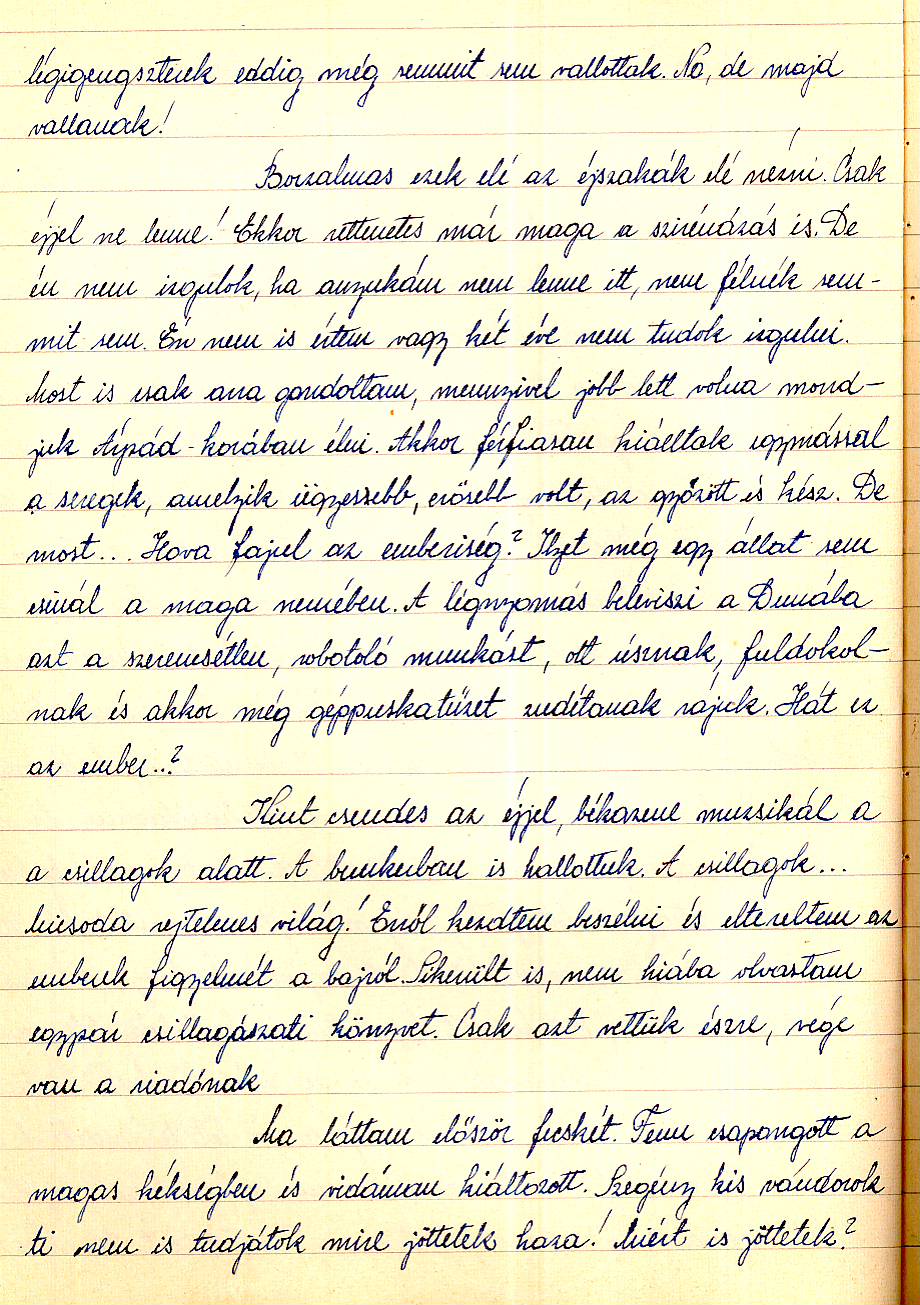 légigengszterek eddig még semmit sem vallottak. No, de majd
vallanak!
Borzalmas ezek elé az éjszakák elé nézni. Csak
éjjel ne lenne! Ekkor rettenetes már maga a szirénázás is. De
én nem izgulok, ha anyukám nem lenne itt, nem félnék sem-
mit sem. Én nem is értem vagy két éve nem tudok izgulni.
Most is csak arra gondoltam, mennyivel jobb lett volna mond-
juk Árpád-korában élni. Akkor férfiasan kiálltak egymással
a seregek, amelyik ügyesebb, erősebb volt, az győzött és kész. De
most... Hova fajul az emberiség? Ilyet még egy állat sem
csinál a maga nemében. A légnyomás beleviszi a Dunába
azt a szerencsétlen, robotoló munkást, ott úsznak, fuldokol-
nak és akkor még géppuskatüzet zudítanak rájuk. Hát ez
az ember..?
Kint csendes az éjjel, békazene muzsikál a
a csillagok alatt. A bunkerban is hallottuk. A csillagok...
micsoda rejtelmes világ! Erről kezdtem beszélni és eltereltem az
emberek figyelmét a bajról. Sikerült is, nem hiába olvastam
egypár csillagászati könyvet. Csak azt vettük észre, vége
van a riadónak
Ma láttam először fecskét. Fenn csapongott a
magas kékségben és vidáman kiáltozott. Szegény kis vándorok
ti nem is tudjátok mire jöttetek haza! Miért is jöttetek?